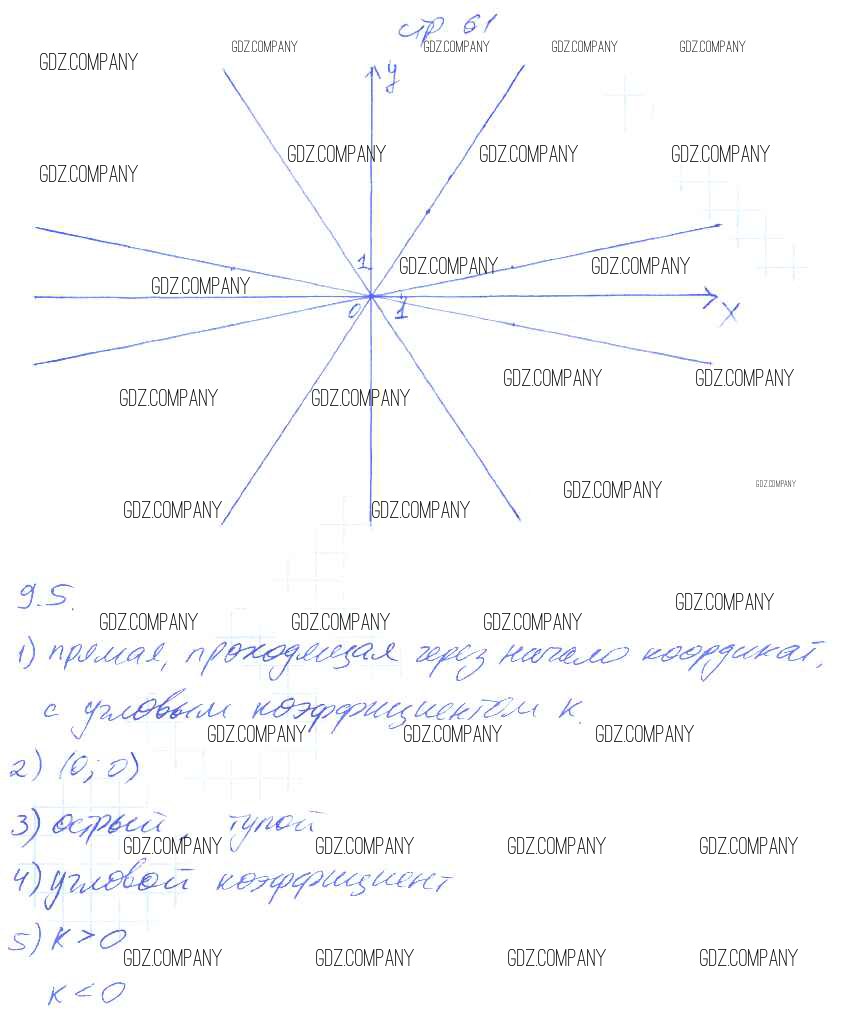 стр 61
GDZ.COMPANY GDZ.COMPANY GDZ.COMPANY GDZ.COMPANY GDZ.COMPANY
y
GDZ.COMPANY GDZ.COMPANY GDZ.COMPANY GDZ.COMPANY
1
GDZ.COMPANY GDZ.COMPANY GDZ.COMPANY
0 1 X
GDZ.COMPANY GDZ.COMPANY GDZ.COMPANY GDZ.COMPANY
GDZ.COMPANY GDZ.COMPANY GDZ.COMPANY GDZ.COMPANY
9.5.
GDZ.COMPANY GDZ.COMPANY GDZ.COMPANY GDZ.COMPANY
1) прямая, проходящая через начало координат,
с угловым коэффициентом к.
GDZ.COMPANY GDZ.COMPANY GDZ.COMPANY
2) (0; 0)
3) острый, тупой
GDZ.COMPANY GDZ.COMPANY GDZ.COMPANY GDZ.COMPANY
4) угловой коэффициент
5) к > 0
GDZ.COMPANY GDZ.COMPANY GDZ.COMPANY GDZ.COMPANY
к < 0